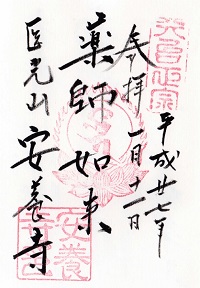 平成廿七年
奉拝 一月十一日
薬師如来
医光山 安養寺
天台正宗
安養寺印